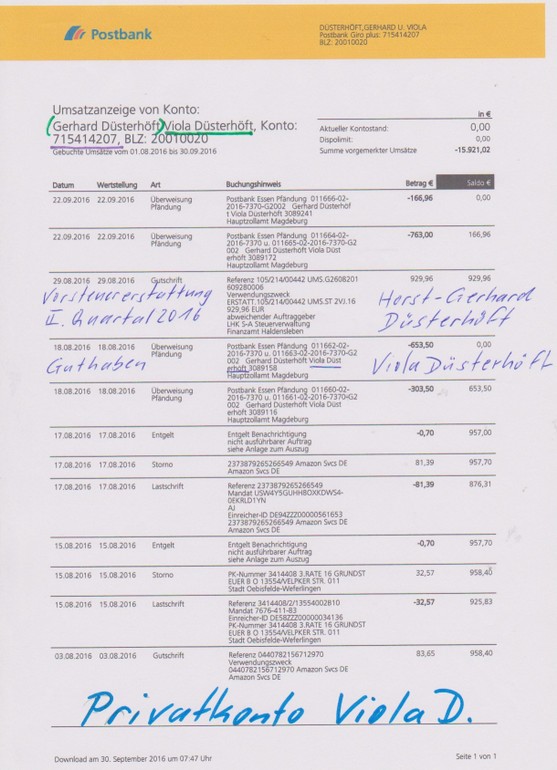 Postbank
DÜSTERHÖFT,GERHARD U. VIOLA
Postbank Giro plus: 715414207
BLZ: 20010020
Umsatzanzeige von Konto:
(Gerhard Düsterhöft) Viola Düsterhöft, Konto:
715414207, BLZ: 20010020
Gebuchte Umsätze vom 01.08.2016 bis 30.09.2016
in €
Aktueller Kontostand: 0,00
Dispolimit: 0,00
Summe vorgemerkter Umsätze -15.921,02
Datum Wertstellung Art Buchungshinweis Betrag € Saldo €
22.09.2016 22.09.2016 Überweisung Postbank Essen Pfändung 011666-02- -166,96 0,00
Pfändung 2016-7370-G2002 Gerhard Düsterhöf
t Viola Düsterhöft 3089241
Hauptzollamt Magdeburg
22.09.2016 22.09.2016 Überweisung Postbank Essen Pfändung 011664-02- -763,00 166,96
Pfändung 2016-7370 u. 011665-02-2016-7370-G2
002 Gerhard Düsterhöft Viola Düst
erhöft 3089172
Hauptzollamt Magdeburg
29.08.2016 29.08.2016 Gutschrift Referenz 105/214/00442 UMS.G2608201 929,96 929,96
609280006
Verwendungszweck
ERSTATT.105/214/00442 UMS.ST 2VJ.16
929,96 EUR
abweichender Auftraggeber
LHK S-A Steuerverwaltung
Finanzamt Haldensleben
Vorsteuererstattung
II. Quartal 2016
Horst-Gerhard
Düsterhöft
18.08.2016 18.08.2016 Überweisung Postbank Essen Pfändung 011662-02- -653,50 0,00
Pfändung 2016-7370 u. 011663-02-2016-7370-G2
002 Gerhard Düsterhöft Viola Düst
erhöft 3089158
Hauptzollamt Magdeburg
Guthaben
Viola Düsterhöft
18.08.2016 18.08.2016 Überweisung Postbank Essen Pfändung 011660-02- -303,50 653,50
Pfändung 2016-7370 u. 011661-02-2016-7370-G2
002 Gerhard Düsterhöft Viola Düst
erhöft 3089116
Hauptzollamt Magdeburg
17.08.2016 17.08.2016 Entgelt Entgelt Benachrichtigung -0,70 957,00
nicht ausführbarer Auftrag
siehe Anlage zum Auszug
17.08.2016 17.08.2016 Storno 2373879265266549 Amazon Svcs DE 81,39 957,70
Amazon Svcs DE
17.08.2016 17.08.2016 Lastschrift Referenz 2373879265266549 -81,39 876,31
Mandat USW4Y5GUHH8OXKDWS4-
0EKRLD1YN
AJ
Einreicher-ID DE94ZZZ00000561653
2373879265266549 Amazon Svcs DE
Amazon Svcs DE
15.08.2016 15.08.2016 Entgelt Entgelt Benachrichtigung -0,70 957,70
nicht ausführbarer Auftrag
siehe Anlage zum Auszug
15.08.2016 15.08.2016 Storno PK-Nummer 3414408 3.RATE 16 GRUNDST 32,57 958,40
EUER B O 13554/VELPKER STR. 011
Stadt Oebisfelde-Weferlingen
15.08.2016 15.08.2016 Lastschrift Referenz 3414408/2/13554002B10 -32,57 925,83
Mandat 7676-411-83
Einreicher-ID DE58ZZZ00000034136
PK-Nummer 3414408 3.RATE 16 GRUNDST
EUER B O 13554/VELPKER STR. 011
Stadt Oebisfelde-Weferlingen
03.08.2016 03.08.2016 Gutschrift Referenz 0440782156712970 83,65 958,40
Verwendungszweck
0440782156712970 Amazon Svcs DE
Amazon Svcs DE
Privatkonto Viola D.
Download am 30. September 2016 um 07:47 Uhr
Seite 1 von 1